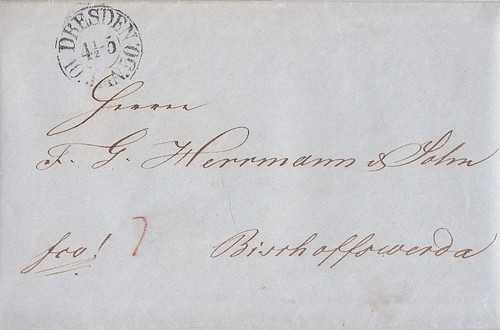 DRESDEN
10.
Herren
F. G. Herrmann & Sohn
fco! 7
Bischoffswerda